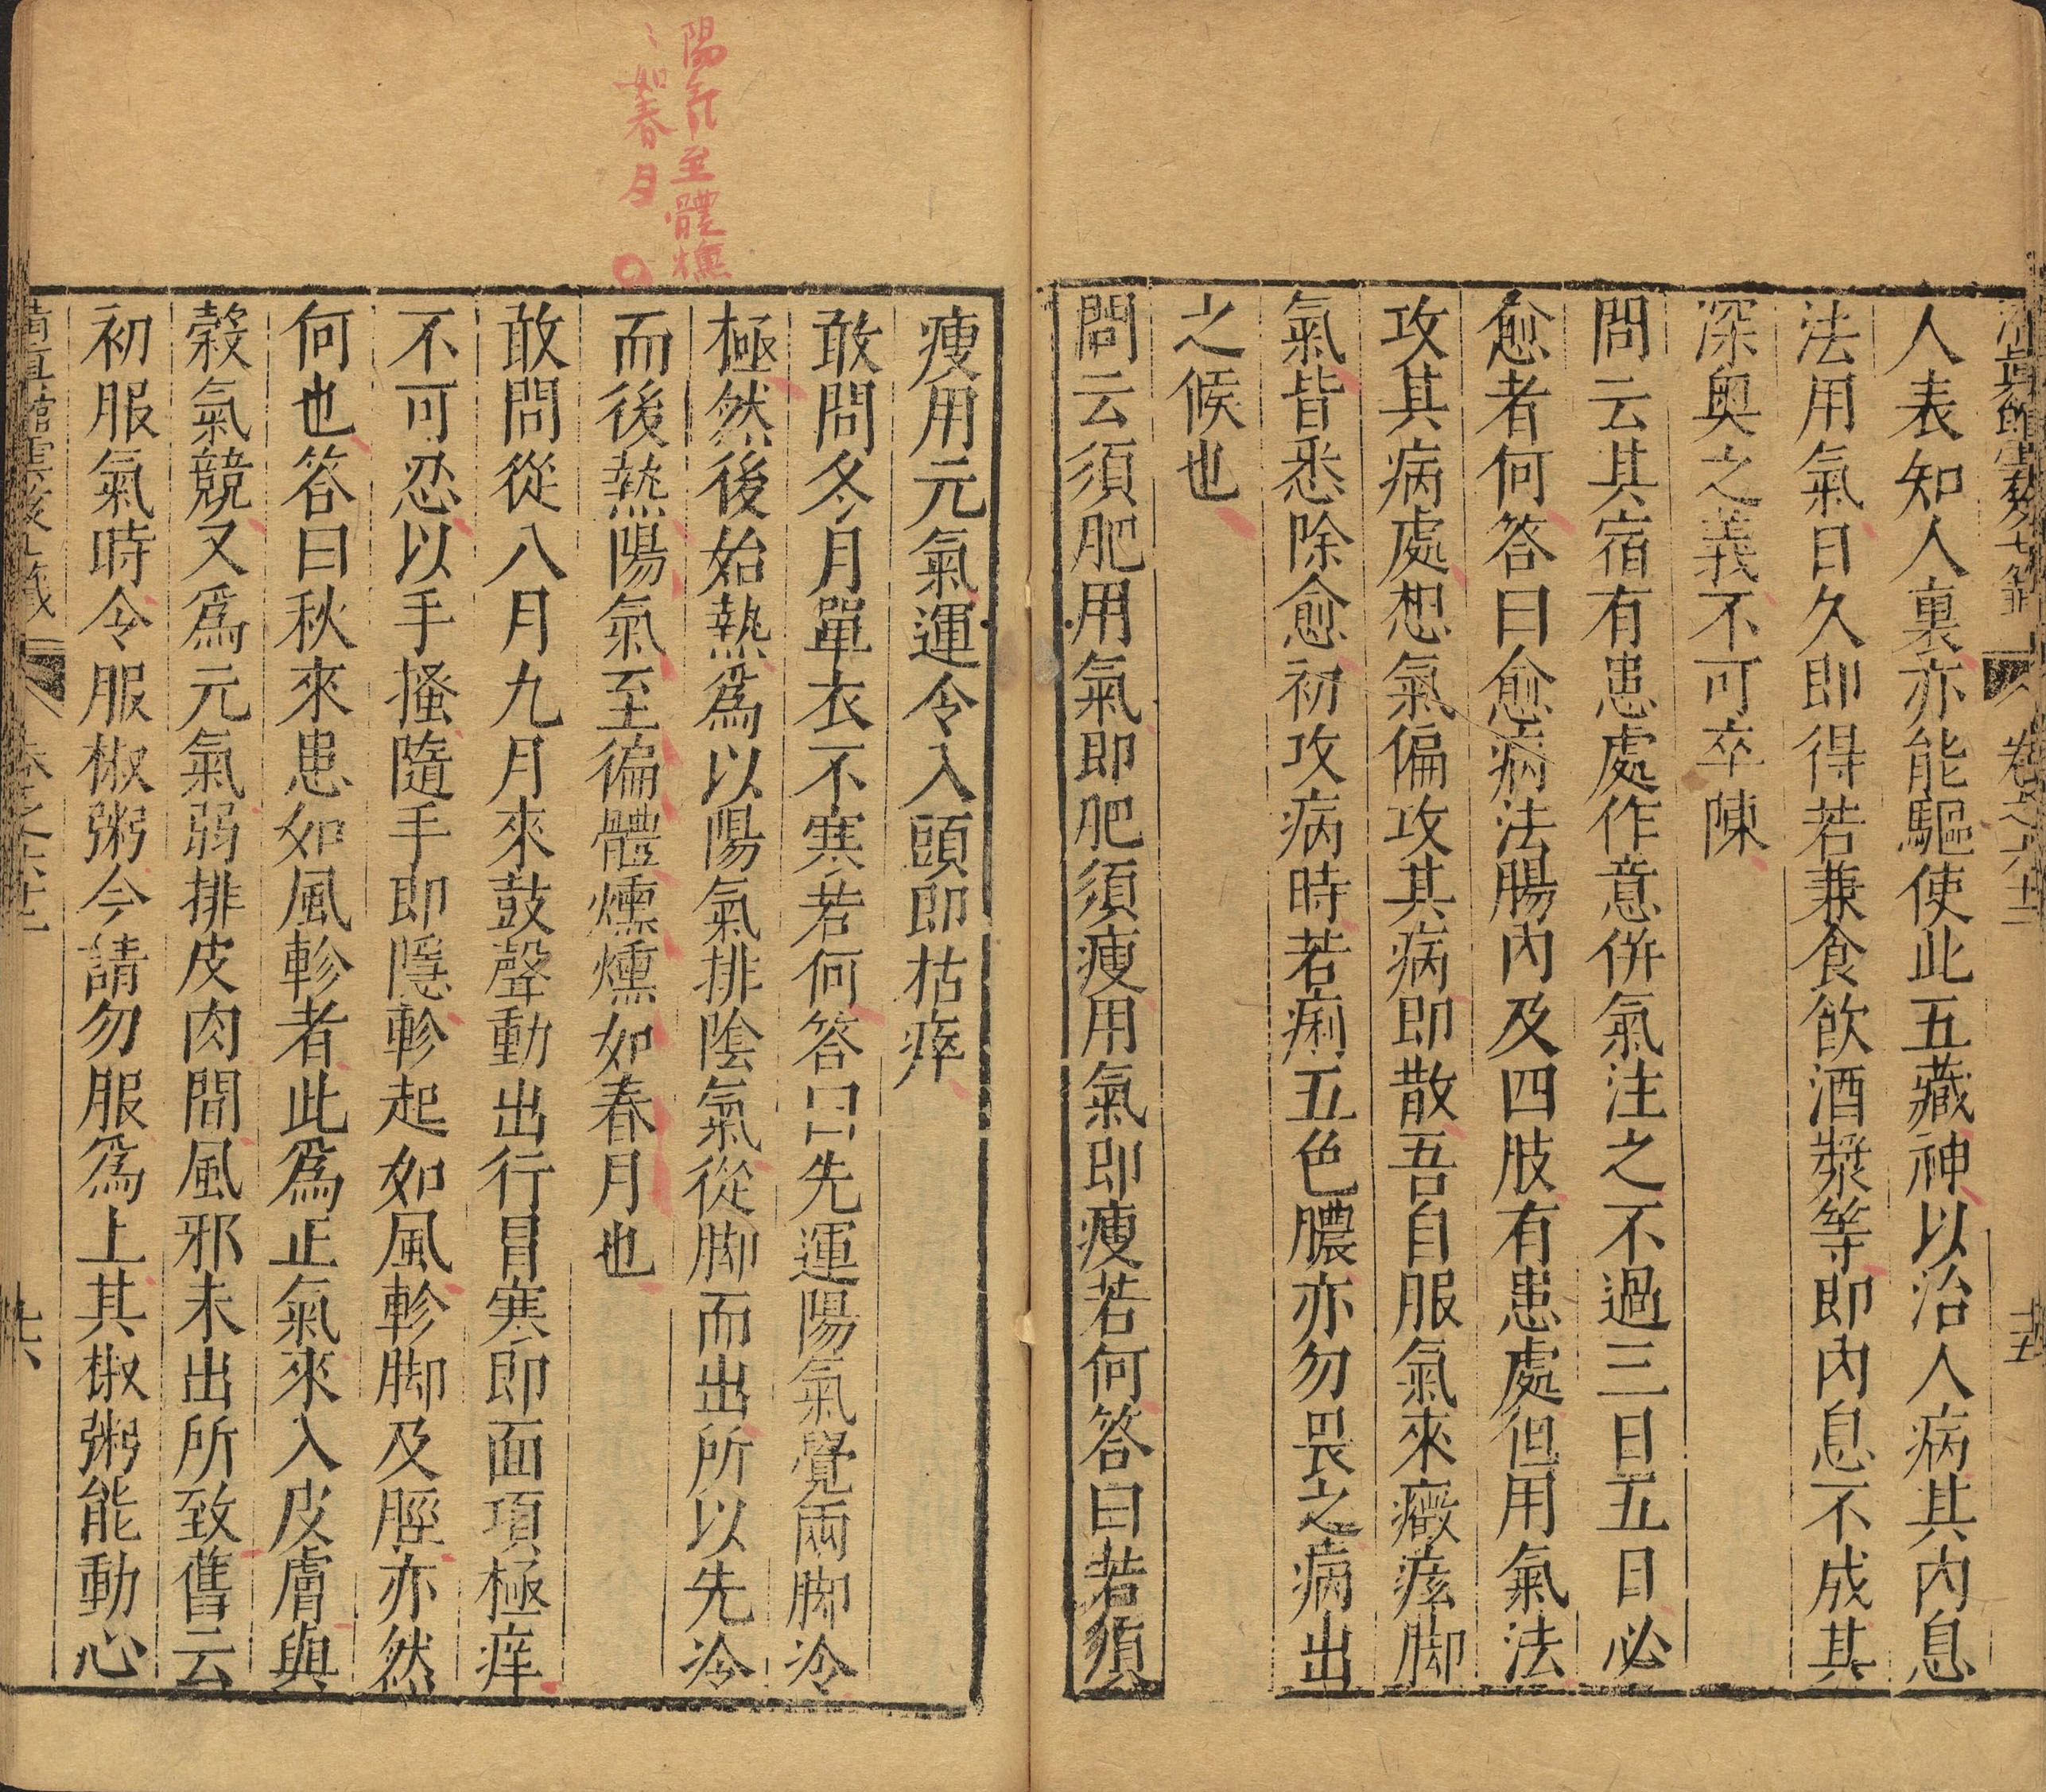 清真館雲笈七籤 卷之六十二 十五
人表知人裏亦能驅使此五藏神以治人病其內息
法用氣日久即得若兼食飲酒漿等即內息不成其
深奧之義不可卒陳
問云其宿有患處作意併氣注之不過三日五日必
愈者何答曰愈病法腸內及四肢有患處但用氣法
攻其病處想氣偏攻其病即散吾自服氣來癥痃脚
氣皆悉除愈初攻病時若痢五色膿亦勿畏之病出
之候也
問云須肥用氣即肥須瘦用氣即瘦若何答曰若須
陽氣至體燻
〻如春月
瘦用元氣運令入頭即枯瘁
敢問冬月單衣不寒若何答曰先運陽氣覺兩脚冷
極然後始熱爲以陽氣排陰氣從脚而出所以先冷
而後熱陽氣至徧體燻燻如春月也
敢問從八月九月來鼓聲動出行冒寒即面項極痒
不可忍以手搔隨手即隱軫起如風軫脚及脛亦然
何也答曰秋來患如風軫者此爲正氣來入皮膚與
穀氣競又爲元氣弱排皮肉間風邪未出所致舊云
初服氣時令服椒粥今請勿服爲上其椒粥能動心
清真館雲笈七籤 卷之六十二 十六